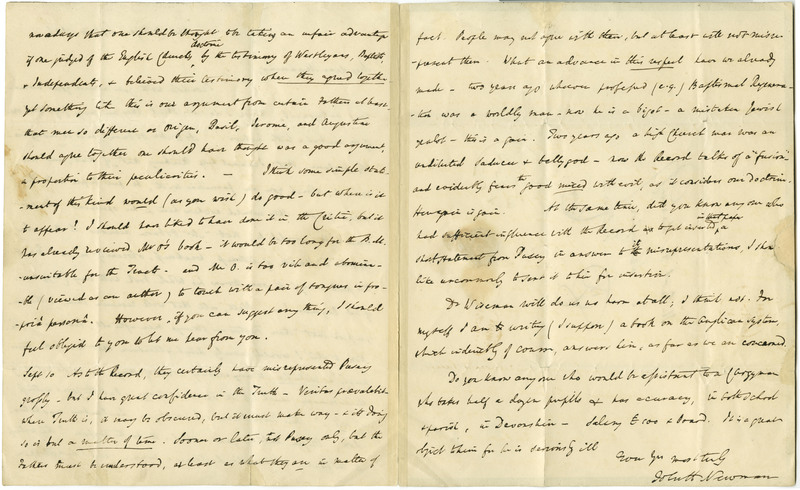 nowadays that one should be thought to be taking an unfair advantage
if one judged of the English Church's doctrine by the testimony of Wesleyans, Baptists,
& Independents, & believed their testimony when they agreed together
yet something like this is our argument from certain Fathers at least.
that men so different as Origen, Basil, Jerome, and Augustine
should agree together one should have thought was a good argument,
in proportion to their peculiarities. — I think some simple state-
-ment of this kind would (as you wish) do good – but where is it
to appear? I should have liked to have done it in the Critic, but it
has already reviewed Mr O's book – it would be too long for the B. M.
– unsuitable for the Tracts. – and Mr O. is too vile and abomina-
-ble (viewed as an author) to touch with a pair of tongs in pro-
-priâ personâ. However, if you can suggest any thing, I should
feel obliged to you to let me hear from you.
Sept 10 As to the Record, they certainly have misrepresented Pusey
grossly – but I have great confidence in the Truth – Veritas prævalebit
where Truth is, it may be obscured, but it must make way – & its doing
so is but a matter of time. Sooner or later, not Pusey only, but the
Fathers must be understood, at least as what they are in matter of
fact. People may not agree with them, but at least will not misre-
-present them. What an advance in this respect have we already
made – two years ago whoever professed (e.g.) Baptismal Regenera-
-tion was a worldly man – now he is a bigot – a mistaken Jewish
zealot – this is a gain. Two years ago a high Church man was an
undoubted Sadducee & bellygod – now the Record talks of a "fusion"
and evidently fears good mixed with evil, as it considers our doctrine.
Here again is gain. At the same time, did you know any one who
had sufficient influence with the Record to get inserted in that paper a
short statement from Pusey in answer to its misrepresentations, I shd
like uncommonly to send it to him for insertion.
Dr Wiseman will do us no harm at all, I think not. For
myself I am writing (I suppose) a book on the Anglican system,
which indirectly of course, answers him, as far as we are concerned.
Do you know any one who would be assistant to a Clergyman
who takes half a dozen pupils & has accuracy, in both school
& parish, in Devonshire – salary £100 & board. It is a great
object to him for he is seriously ill
Ever Yrs most truly
John H. Newman